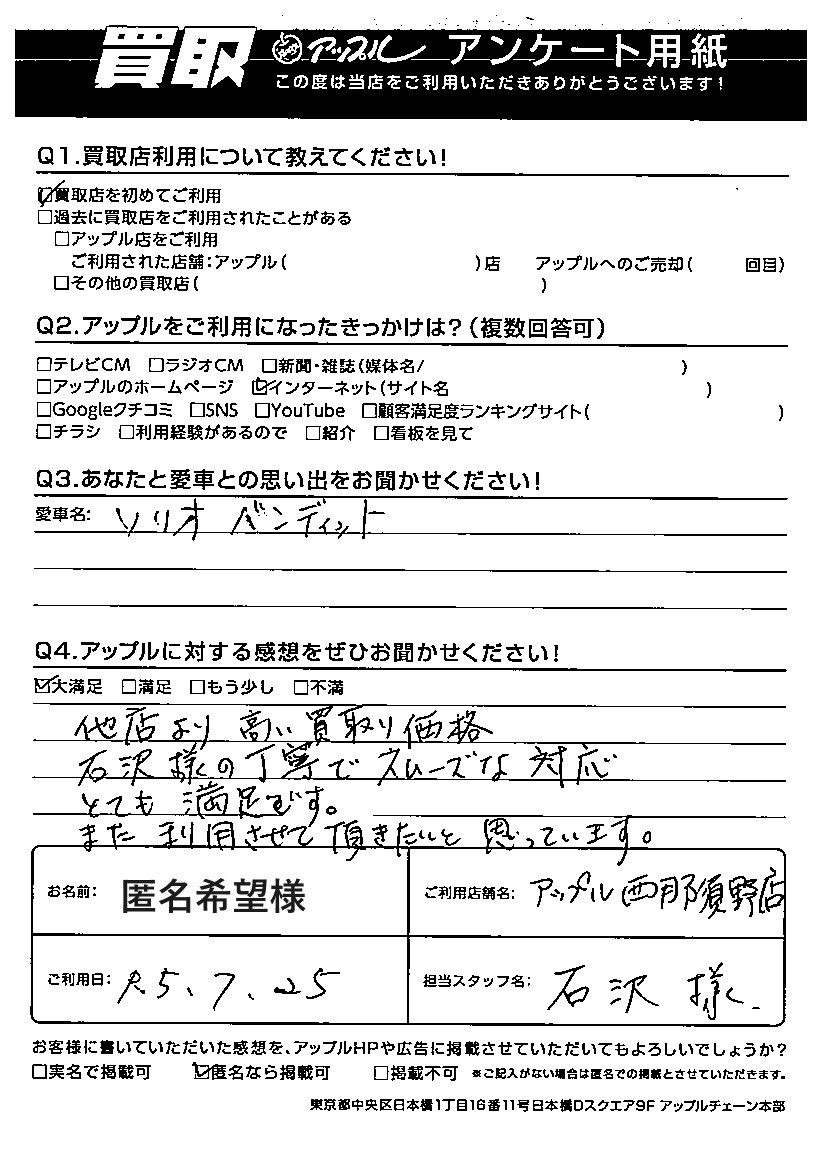 買取 アップル アンケート用紙
この度は当店をご利用いただきありがとうございます!
Q1.買取店利用について教えてください!
☑買取店を初めてご利用
□過去に買取店をご利用されたことがある
□アップル店をご利用
ご利用された店舗:アップル( )店 アップルへのご売却( 回目)
□その他の買取店( )
Q2.アップルをご利用になったきっかけは?(複数回答可)
□テレビCM □ラジオCM □新聞・雑誌(媒体名/ )
□アップルのホームページ ☑インターネット(サイト名 )
□Googleクチコミ □SNS □YouTube □顧客満足度ランキングサイト( )
□チラシ □利用経験があるので □紹介 □看板を見て
Q3.あなたと愛車との思い出をお聞かせください!
愛車名: ソリオ バンディット
Q4.アップルに対する感想をぜひお聞かせください!
☑大満足 □満足 □もう少し □不満
他店より 高い買取り価格
石沢様の丁寧でスムーズな 対応
とても 満足です。
また 利用させて 頂きたいと 思っています。
お名前: 匿名希望様 ご利用店舗名: アップル西那須野店
ご利用日: R5、7、25 担当スタッフ名: 石沢 様
お客様に書いていただいた感想を、アップルHPや広告に掲載させていただいてもよろしいでしょうか?
□実名で掲載可 ☑匿名なら掲載可 □掲載不可 ※ご記入がない場合は匿名での掲載とさせていただきます。
東京都中央区日本橋1丁目16番11号日本橋Dスクエア9F アップルチェーン本部